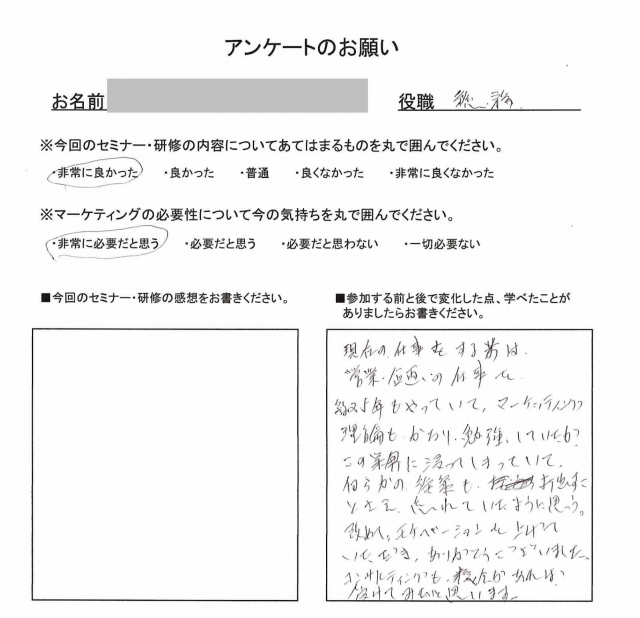 アンケートのお願い
お名前 役職 総務
※今回のセミナー・研修の内容についてあてはまるものを丸で囲んでください。
・非常に良かった ・良かった ・普通 ・良くなかった ・非常に良くなかった
※マーケティングの必要性について今の気持ちを丸で囲んでください。
・非常に必要だと思う ・必要だと思う ・必要だと思わない ・一切必要ない
■今回のセミナー・研修の感想をお書きください。
■参加する前と後で変化した点、学べたことが
ありましたらお書きください。
現在の仕事をする前は
営業・企画の仕事を
数5年もやっていて、マーケティング
理論も、かなり勉強していたが
この業界に浸ってしまっていて、
何らかの提案も、お出すこ
とさえ、忘れていたように思う。
改めて、モチベーションを上げて
いただき、ありがとうございました。
コンサルティングも、機会があれば
受けてみたいと思います。